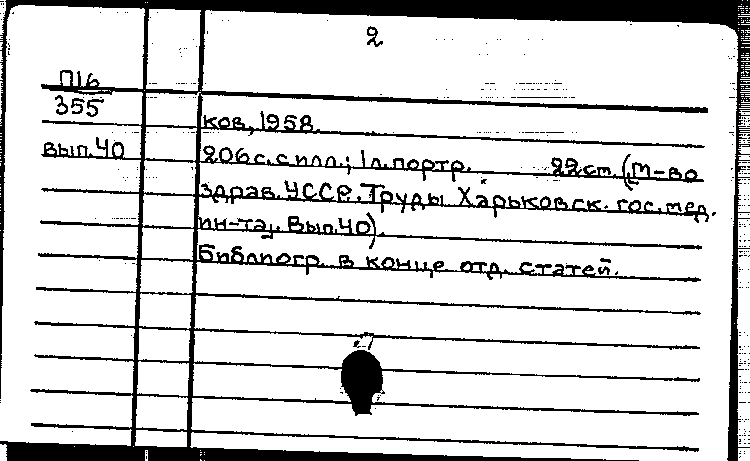 2
П16
355
ков, 1958.
вып.40
206с. с илл.; 1л. портр. 22см. (М-во
здрав. УССР. Труды Харьковск. гос. мед.
ин-та, Вып.40).
Библиогр. в конце отд. статей.